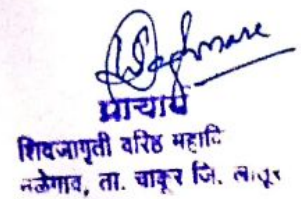 प्राचार्य
शिवजागृती वरिष्ठ महावि
नळेगाव, ता. चाकूर जि. लातूर